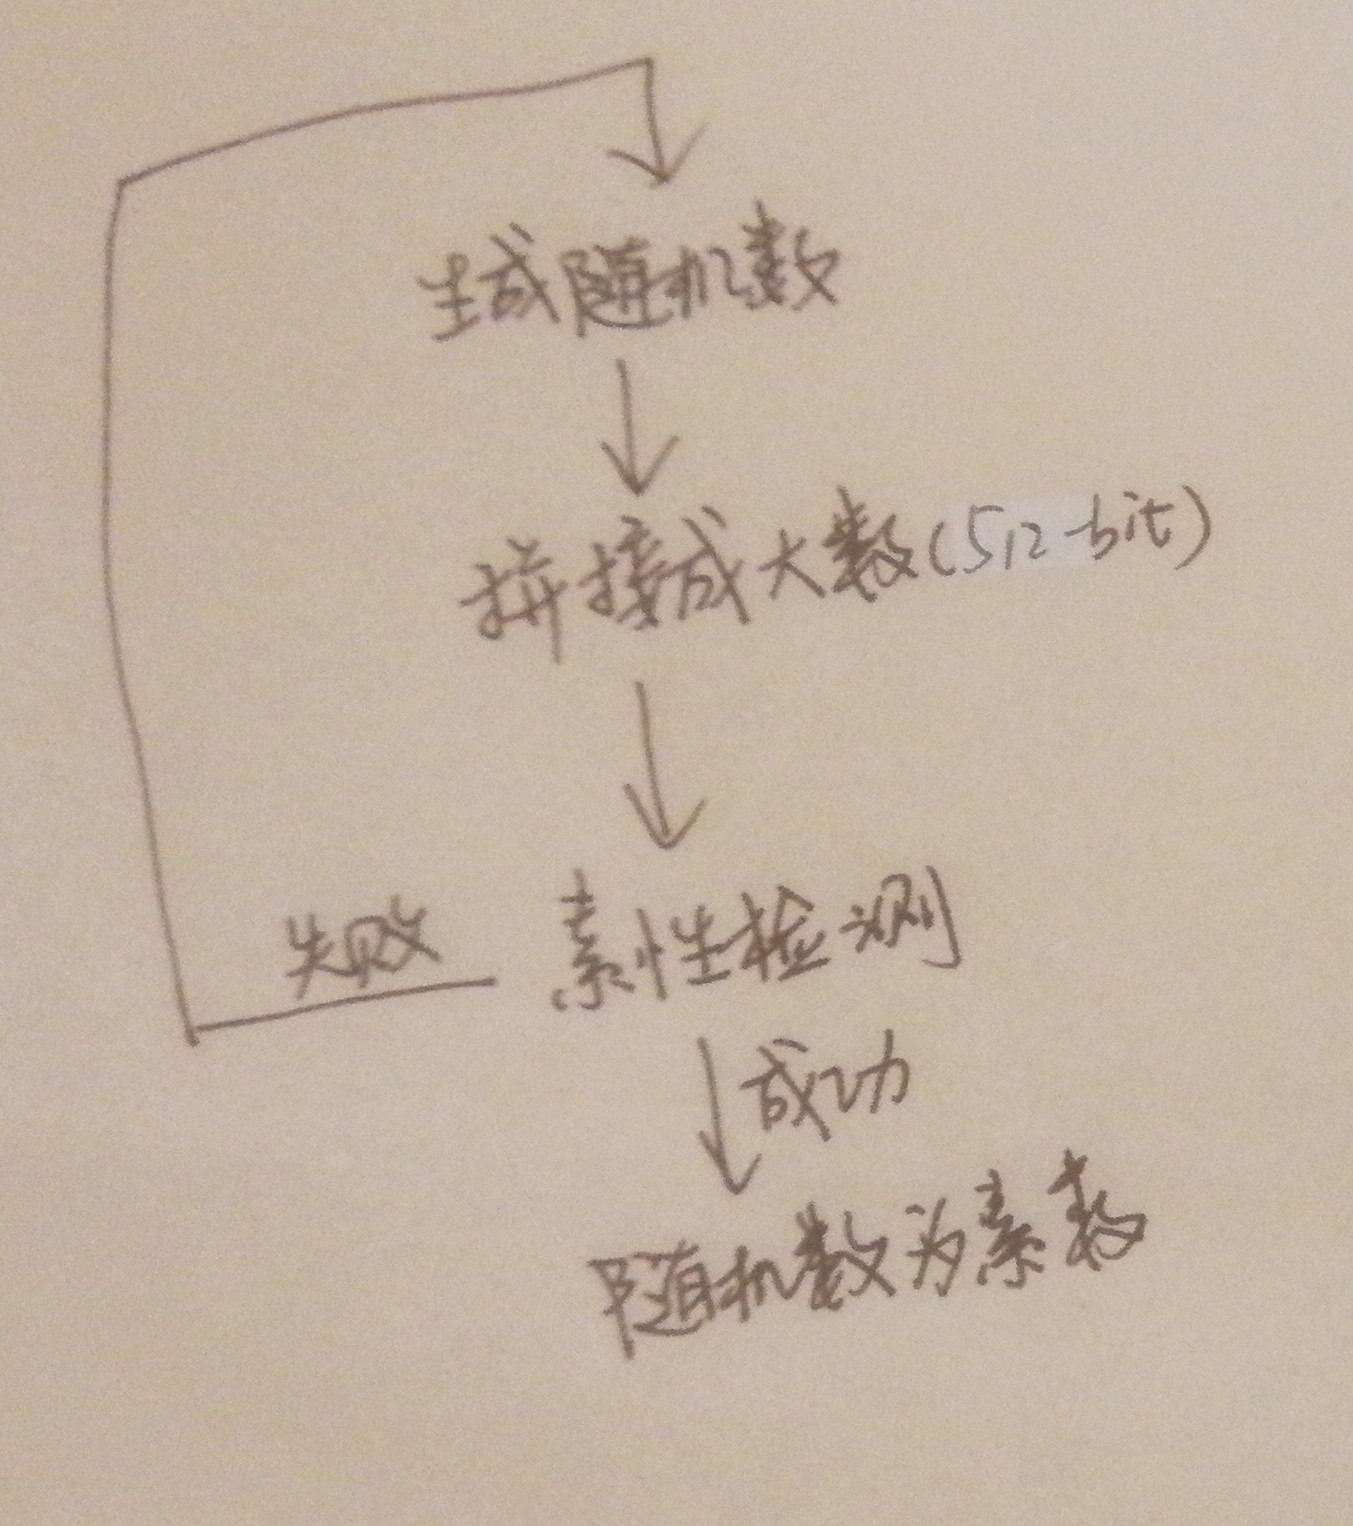 生成随机数
拼接成大数(512-bit)
失败
素性检测
成功
随机数为素数